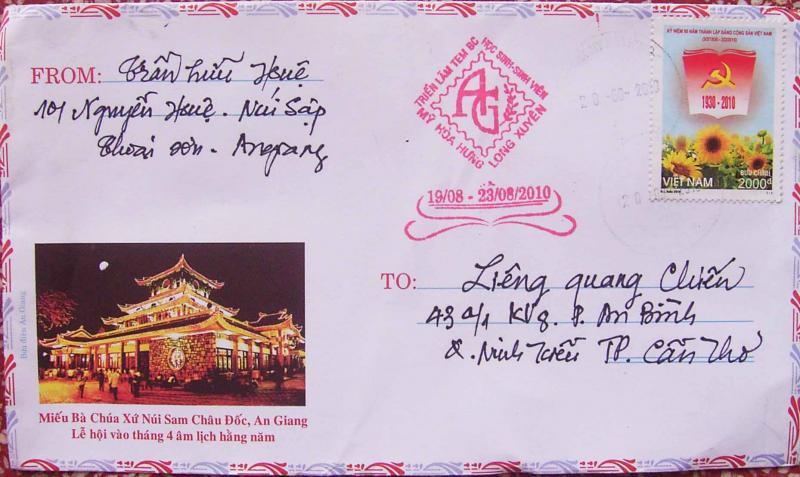 FROM: Trần Hữu Huệ
101 Nguyễn Huệ - Núi Sập
Thoại Sơn - An giang
TRIỂN LÃM TEM BC HỌC SINH-SINH VIÊN
AG
MỸ HÒA HƯNG LONG XUYÊN
19/08 - 23/08/2010
KỶ NIỆM 80 NĂM THÀNH LẬP ĐẢNG CỘNG SẢN VIỆT NAM
(3/2/1930 - 3/2/2010)
1930 - 2010
BƯU CHÍNH
VIỆT NAM 2000đ
TO: Liêng quang Chiến
43 a/1 KV2. P. An Bình
Q. Ninh Kiều TP. Cần Thơ
Bưu điện An Giang
Miếu Bà Chúa Xứ Núi Sam Châu Đốc, An Giang
Lễ hội vào tháng 4 âm lịch hằng năm